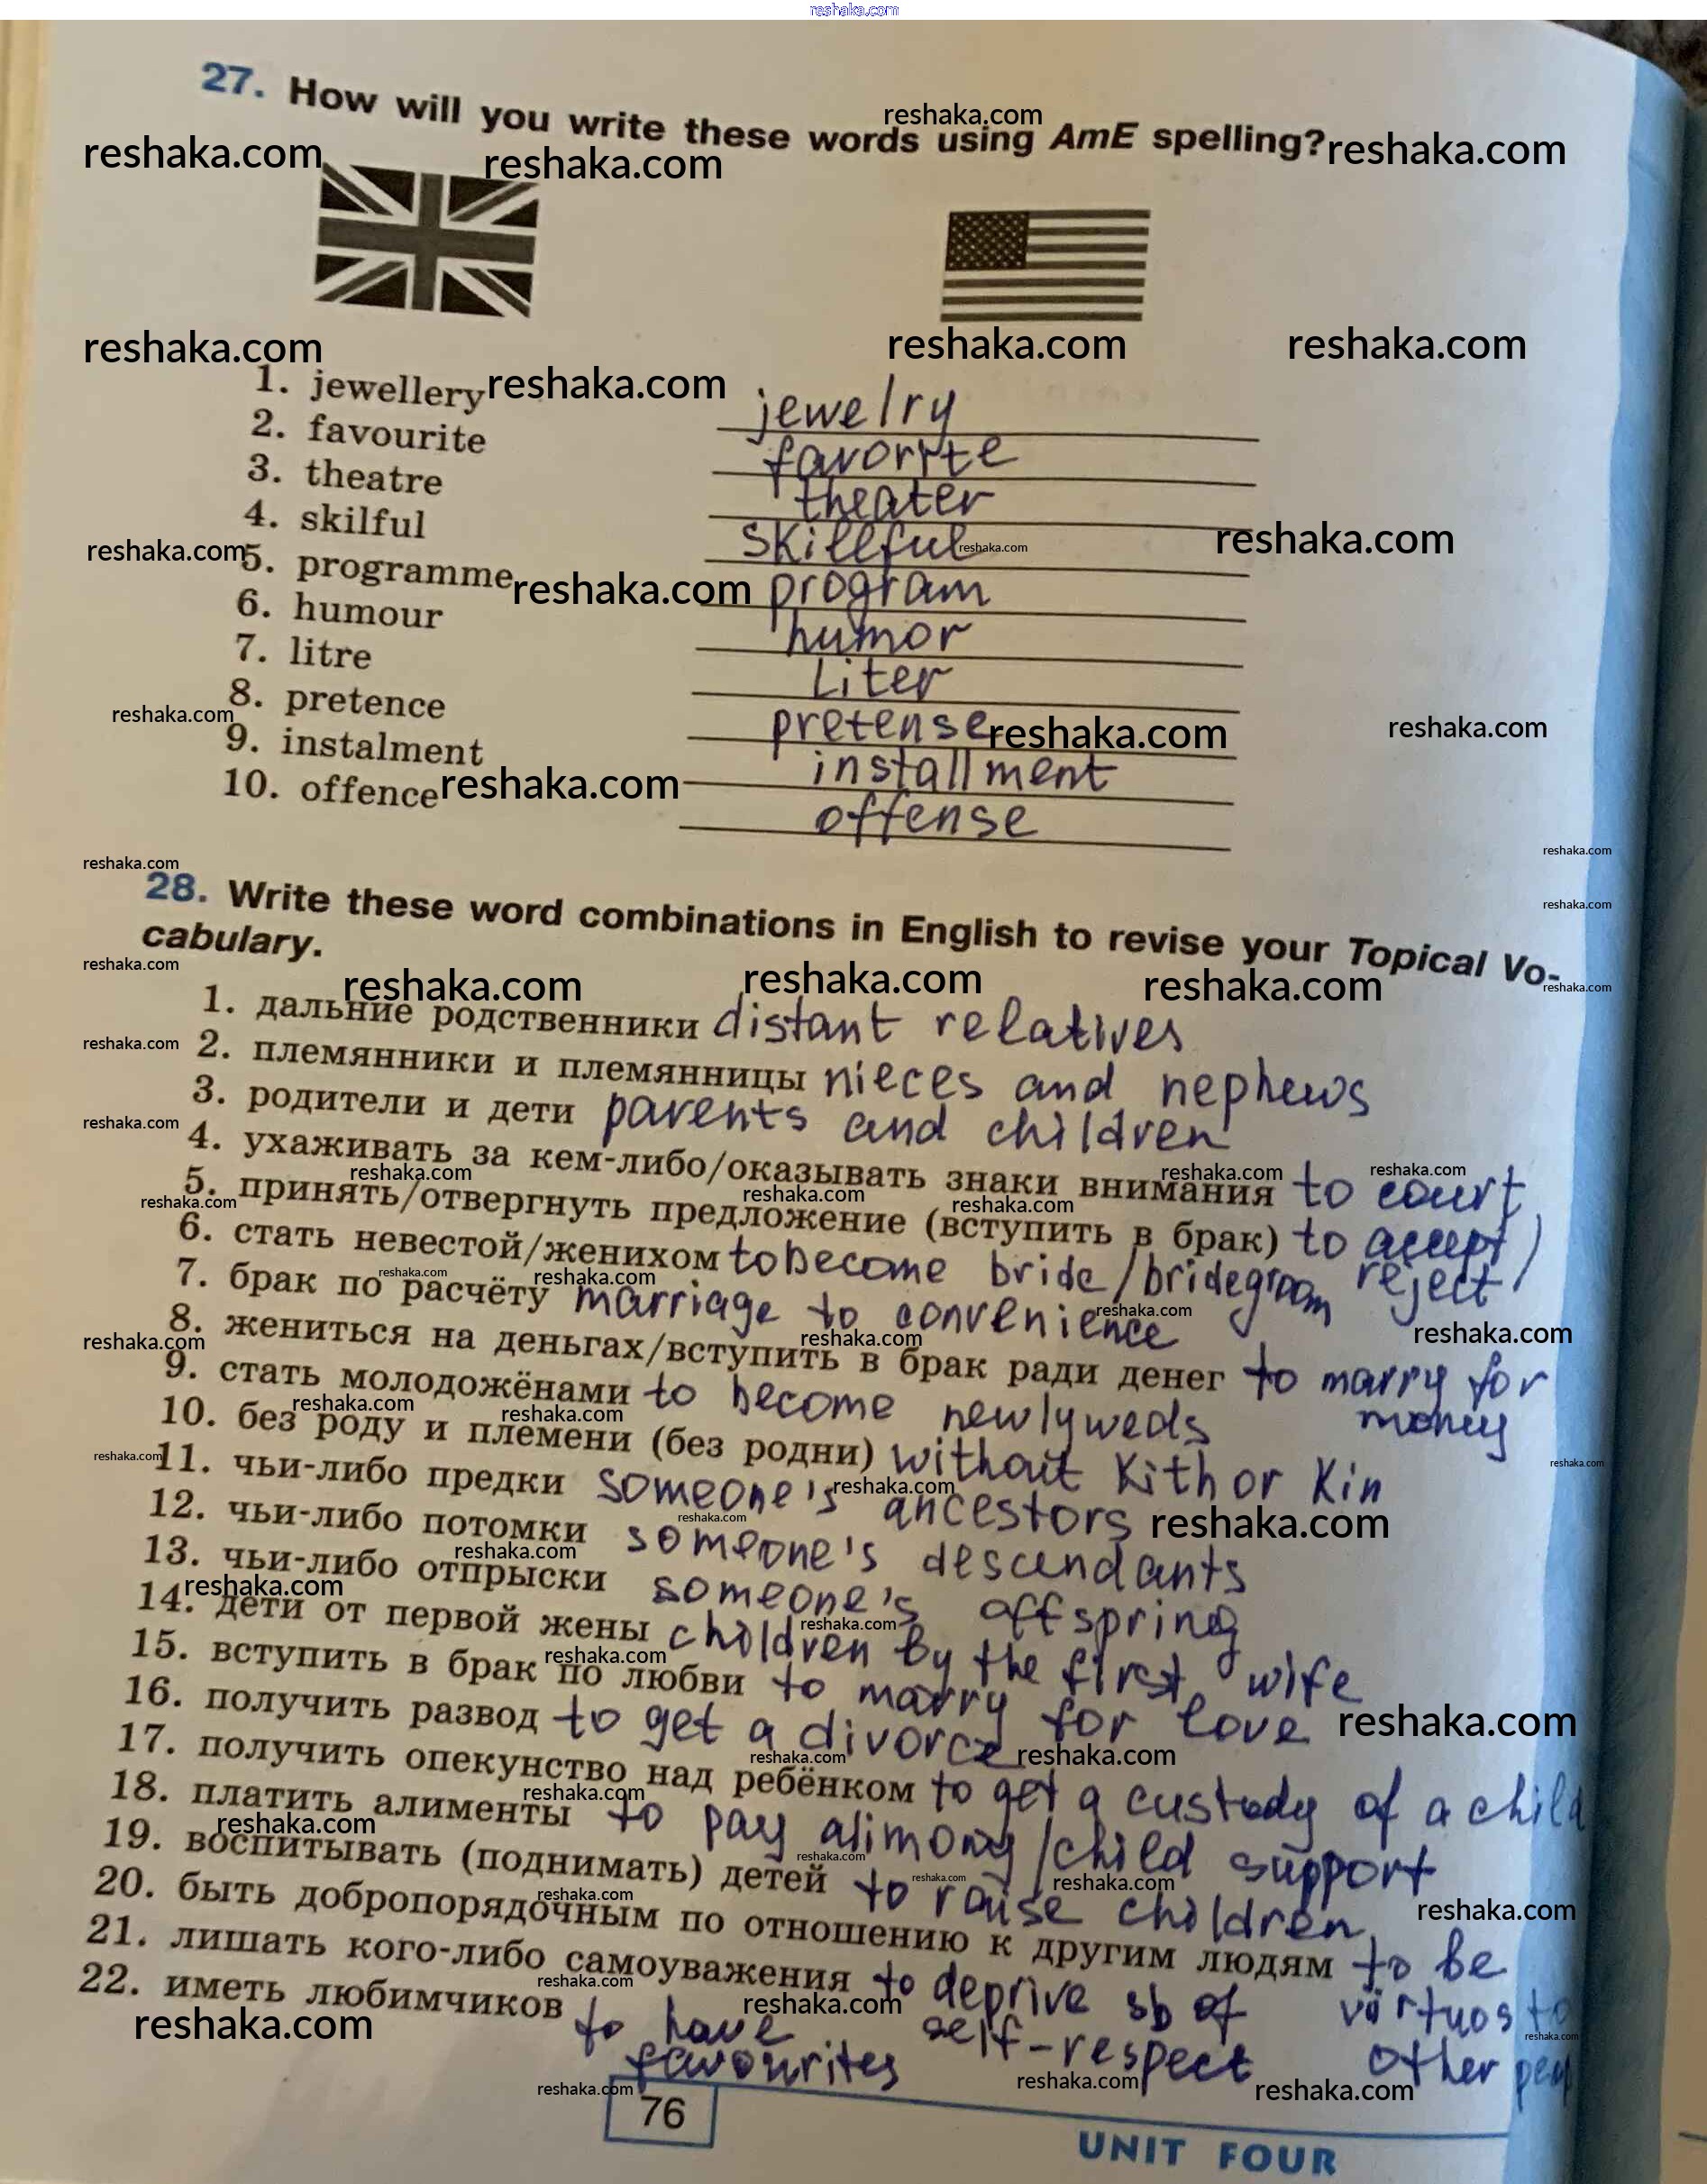 reshaka.com
27. How will you write these words using AmE spelling?
1. jewellery jewelry
2. favourite favorite
3. theatre theater
4. skilful skillful
5. programme program
6. humour humor
7. litre Liter
8. pretence pretense
9. instalment installment
10. offence offense
28. Write these word combinations in English to revise your Topical Vo-
cabulary.
1. дальние родственники distant relatives
2. племянники и племянницы nieces and nephews
3. родители и дети parents and children
4. ухаживать за кем-либо/оказывать знаки внимания to court
5. принять/отвергнуть предложение (вступить в брак) to accept/
reject
6. стать невестой/женихом to become bride/bridegroom
7. брак по расчёту marriage to convenience
8. жениться на деньгах/вступить в брак ради денег to marry for
money
9. стать молодожёнами to become newlyweds
10. без роду и племени (без родни) without Kith or Kin
11. чьи-либо предки someone's ancestors
12. чьи-либо потомки someone's descendants
13. чьи-либо отпрыски someone's offspring
14. дети от первой жены children by the first wife
15. вступить в брак по любви to marry for love
16. получить развод to get a divorce
17. получить опекунство над ребёнком to get a custody of a child
18. платить алименты to pay alimony/child support
19. воспитывать (поднимать) детей to raise children
20. быть добропорядочным по отношению к другим людям to be
virtuos to
other
21. лишать кого-либо самоуважения to deprive sb of
self-respect
22. иметь любимчиков to have
favourites
76
UNIT FOUR